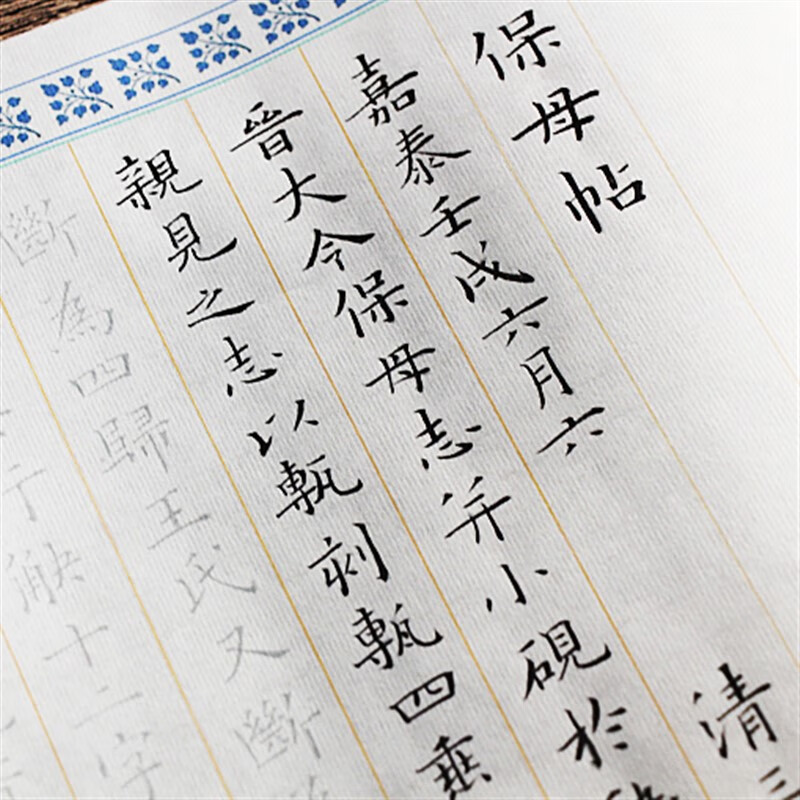 保母帖 清三
嘉泰壬戌六月六
晉大令保母志并小硯於
親見之志以甎刻甎四垂
斷為四歸王氏又斷
十二字